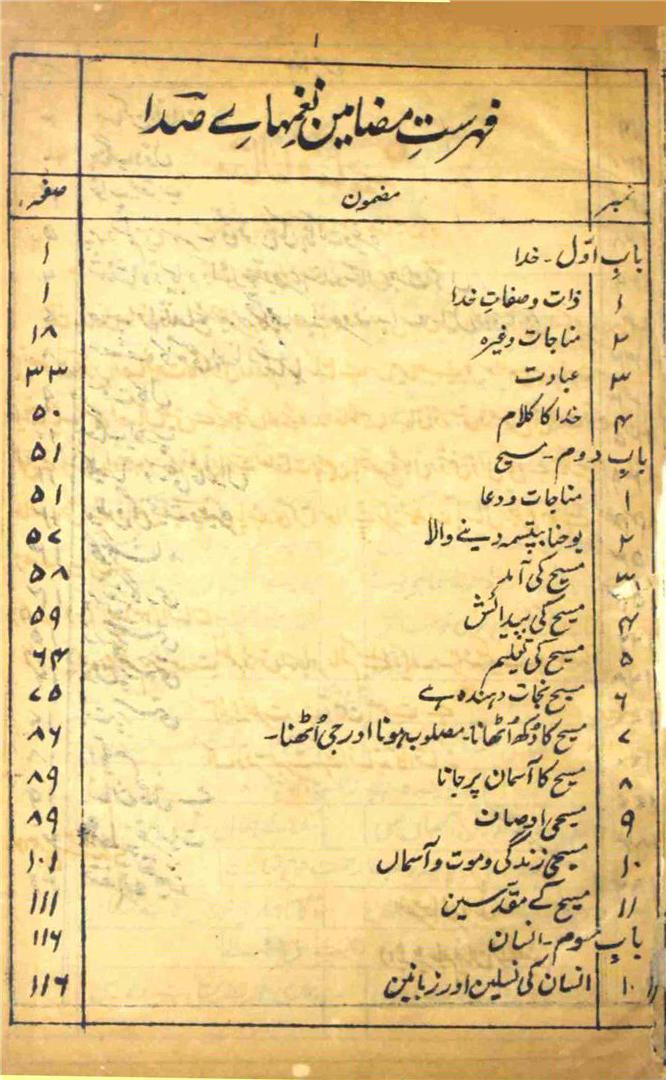 ۱
فہرستِ مضامین نغمہاے صدا
نمبر مضمون صفحہ
بابِ اوّل - خدا ۱
۱ ذات و صفاتِ خدا ۱
۲ مناجات وغیرہ ۱۸
۳ عبادت ۳۳
۴ خدا کا کلام ۵۰
باب دوم - مسیح ۵۱
۱ مناجات و دعا ۵۱
۲ یوحنا بپتسمہ دینے والا ۵۷
۳ مسیح کی آمد ۵۸
۴ مسیح کی پیدائش ۵۹
۵ مسیح کی تعلیم ۶۴
۶ مسیح نجات دہندہ ہے ۷۵
۷ مسیح کا دُکھ اُٹھانا۔ مصلوب ہونا اور جی اُٹھنا۔ ۸۶
۸ مسیح کا آسمان پر جانا ۸۹
۹ مسیحی اوصاف ۸۹
۱۰ مسیحی زندگی و موت و آسماں ۱۰۱
۱۱ مسیح کے مقدّسین ۱۱۱
باب سوم - انسان ۱۱۶
۱۰ انسان کی نسلیں اور زبانیں ۱۱۶